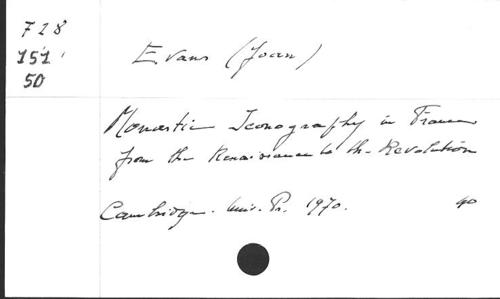 728
151
50
Evans (Joan)
Monastic Iconography in France
from the Renaissance to the Revolution
Cambridge. Univ. Pr. 1970. 4o